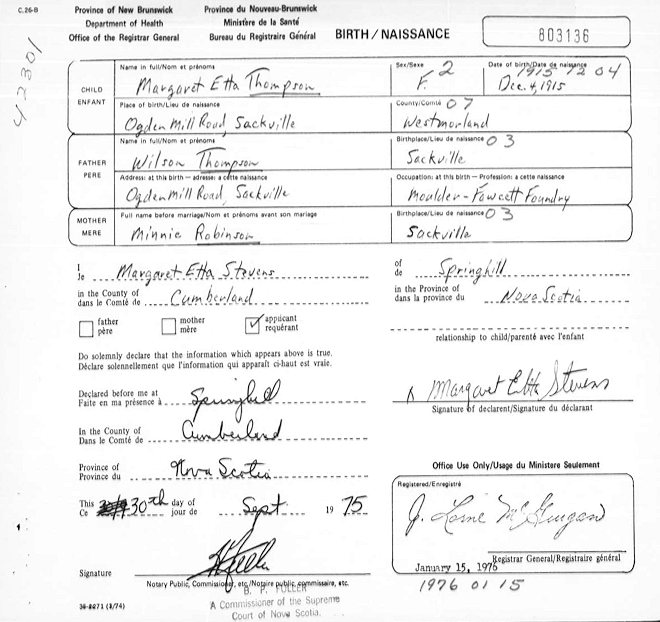 C.26-B
Province of New Brunswick
Department of Health
Office of the Registrar General
Province du Nouveau-Brunswick
Ministère de la Santé
Bureau du Registraire Général
BIRTH / NAISSANCE
803136
42301
CHILD
ENFANT
Name in full/Nom et prénoms
Margaret Etta Thompson
Sex/Sexe 2
F.
Date of birth/Date de naissance
1915 12 04
Dec. 4, 1915
Place of birth/Lieu de naissance
Ogden Mill Road, Sackville
County/Comté 07
Westmorland
FATHER
PERE
Name in full/Nom et prénoms
Wilson Thompson
Birthplace/Lieu de naissance 03
Sackville
Address: at this birth — adresse: a cette naissance
Ogden Mill Road, Sackville
Occupation: at this birth — Profession: a cette naissance
Moulder-Fawcett Foundry
MOTHER
MERE
Full name before marriage/Nom et prénoms avant son mariage
Minnie Robinson
Birthplace/Lieu de naissance 03
Sackville
I
Je Margaret Etta Stevens
of
de Springhill
in the County of
dans le Comté de Cumberland
in the Province of
dans la province du Nova Scotia
father
père
mother
mère
applicant
requérant
relationship to child/parenté avec l'enfant
Do solemnly declare that the information which appears above is true.
Déclare solennellement que l'information qui apparaît ci-haut est vraie.
Declared before me at
Faite en ma présence à Springhill
Margaret Etta Stevens
Signature of declarent/Signature du déclarant
In the County of
Dans le Comté de Cumberland
Province of
Province du Nova Scotia
This
Ce 30th day of
jour de Sept 1975
Office Use Only/Usage du Ministere Seulement
Registered/Enregistré
J. Lorne McGuigan
Registrar General/Registraire général
January 15, 1976
1976 01 15
Signature
Notary Public, Commissioner, etc./Notaire public, commissaire, etc.
B. P. FULLER
A Commissioner of the Supreme
Court of Nova Scotia.
36-8271 (3/74)